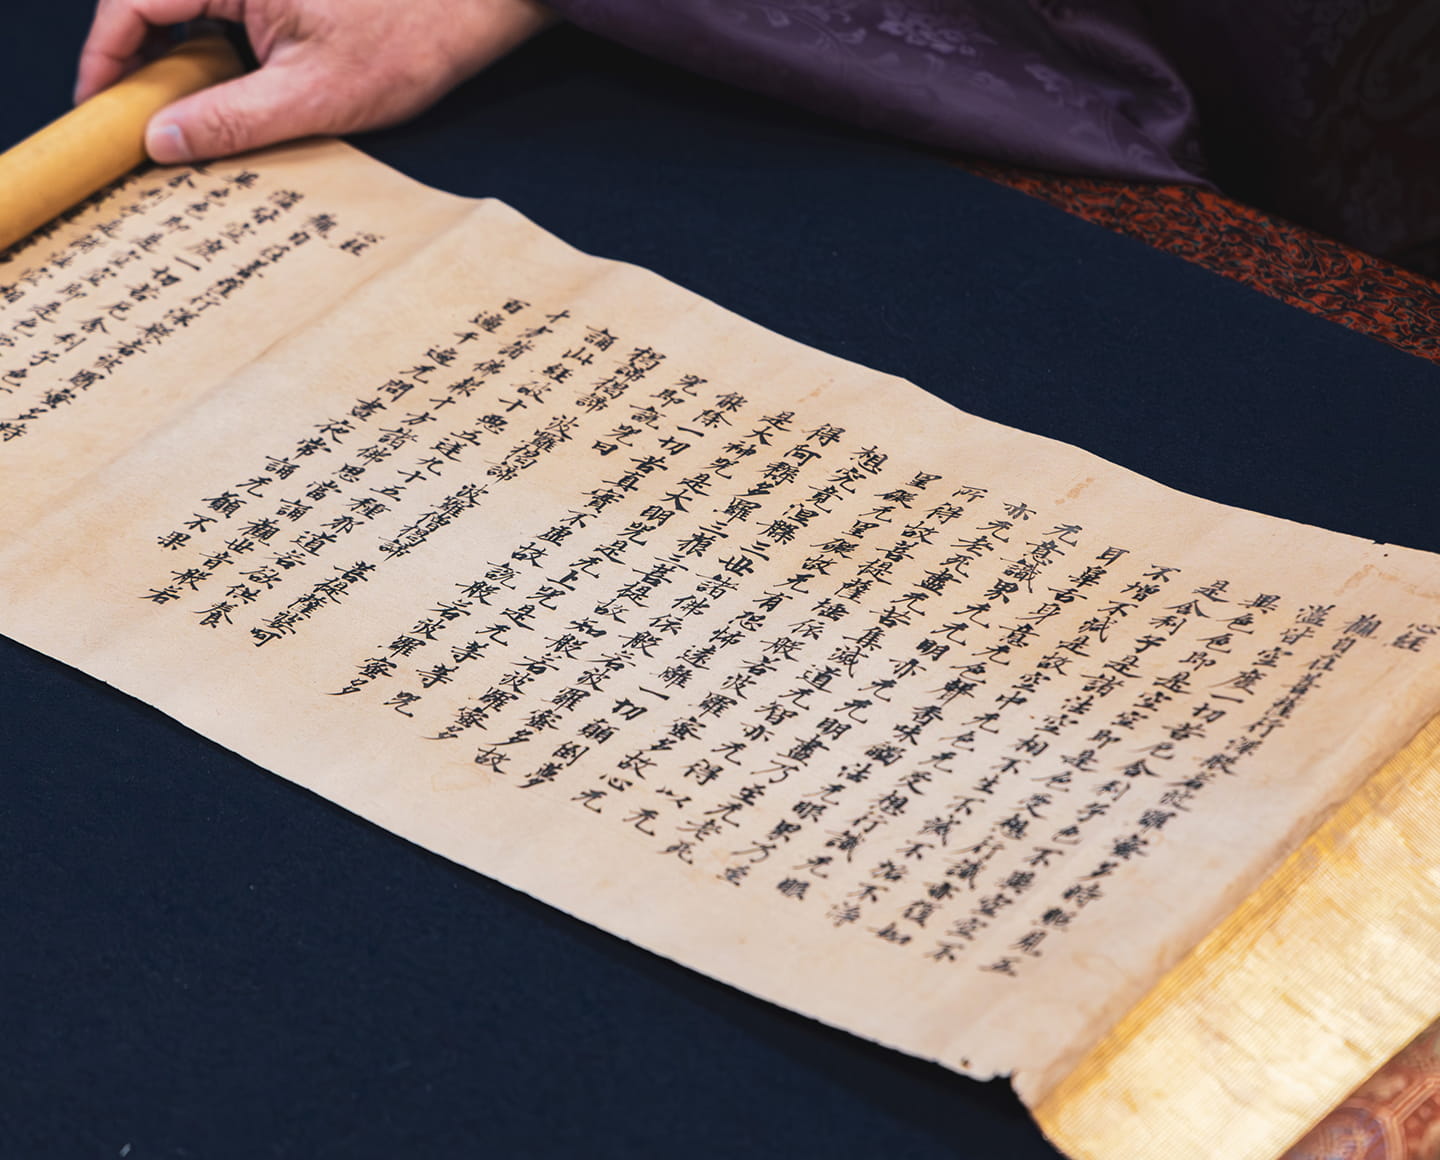 心経
觀自在菩薩行深般若波羅蜜多時照見五
蘊皆空度一切苦厄舍利子色不異空空不
異色色即是空空即是色受想行識亦復如
是舍利子是諸法空相不生不滅不垢不淨
不增不減是故空中无色无受想行識无眼
耳鼻舌身意无色聲香味觸法无眼界乃至
无意識界无无明亦无无明盡乃至无老死
亦无老死盡无苦集滅道无智亦无得以无
所得故菩提薩埵依般若波羅蜜多故心无
罣礙无罣礙故无有恐怖遠離一切顛倒夢
想究竟涅槃三世諸佛依般若波羅蜜多故
得阿耨多羅三藐三菩提故知般若波羅蜜多
是大神呪是大明呪是无上呪是无等等呪
能除一切苦真實不虛故說般若波羅蜜多
呪即說呪曰
揭諦揭諦 波羅揭諦 波羅僧揭諦 菩提薩婆可
誦此經破十惡五逆九十五種邪道若欲供養
十方諸佛報十方諸佛恩當誦觀世音般若
百遍千遍无間晝夜常誦无願不果
心経
觀自在菩薩行深般若波羅蜜多時
蘊皆空度一切苦厄舍利子色
異色色即是空空即是色
舍利子是諸法空相